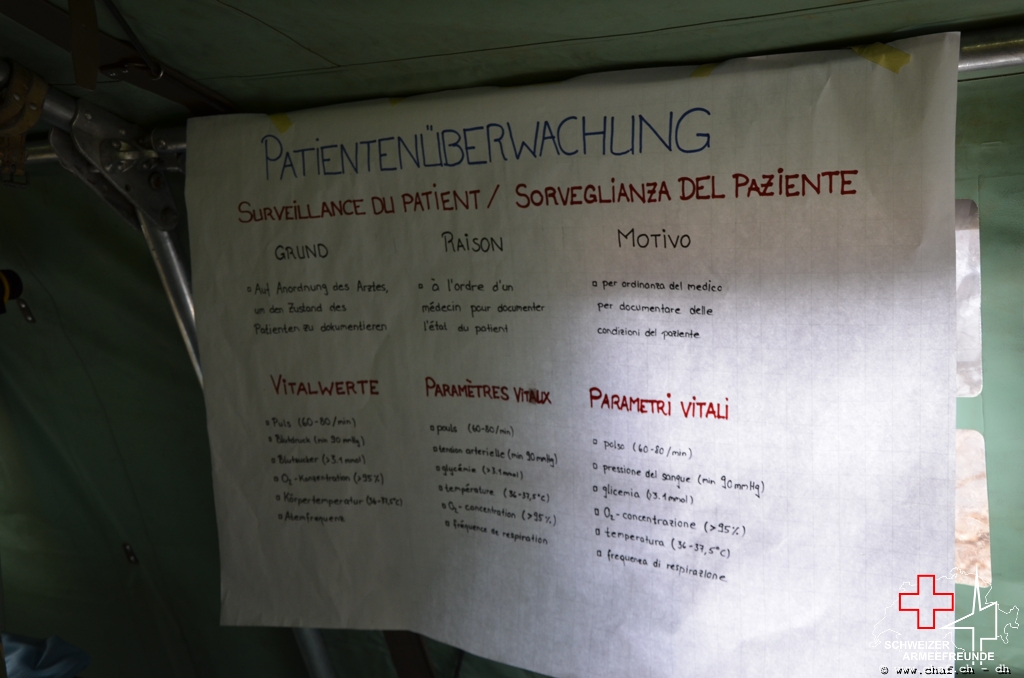 PATIENTENÜBERWACHUNG
SURVEILLANCE DU PATIENT / SORVEGLIANZA DEL PAZIENTE
GRUND
▫ Auf Anordnung des Arztes,
um den Zustand des
Patienten zu dokumentieren
RAISON
▫ à l'ordre d'un
médecin pour documenter
l'état du patient
MOTIVO
▫ per ordinanza del medico
per documentare delle
condizioni del paziente
VITALWERTE
▫ Puls (60-80/min)
▫ Blutdruck (min 90 mmHg)
▫ Blutzucker (>3.1 mmol)
▫ O₂-Konzentration (>95%)
▫ Körpertemperatur (36-37,5°C)
▫ Atemfrequenz
PARAMÈTRES VITAUX
▫ pouls (60-80/min)
▫ tension arterielle (min 90mmHg)
▫ glycémie (>3.1mmol)
▫ température (36-37,5°C)
▫ O₂-concentration (>95%)
▫ fréquence de respiration
PARAMETRI VITALI
▫ polso (60-80/min)
▫ pressione del sangue (min 90mmHg)
▫ glicemia (>3.1mmol)
▫ O₂-concentrazione (>95%)
▫ temperatura (36-37,5°C)
▫ frequenza di respirazione
SCHWEIZER
ARMEEFREUNDE
© www.chaf.ch - dh